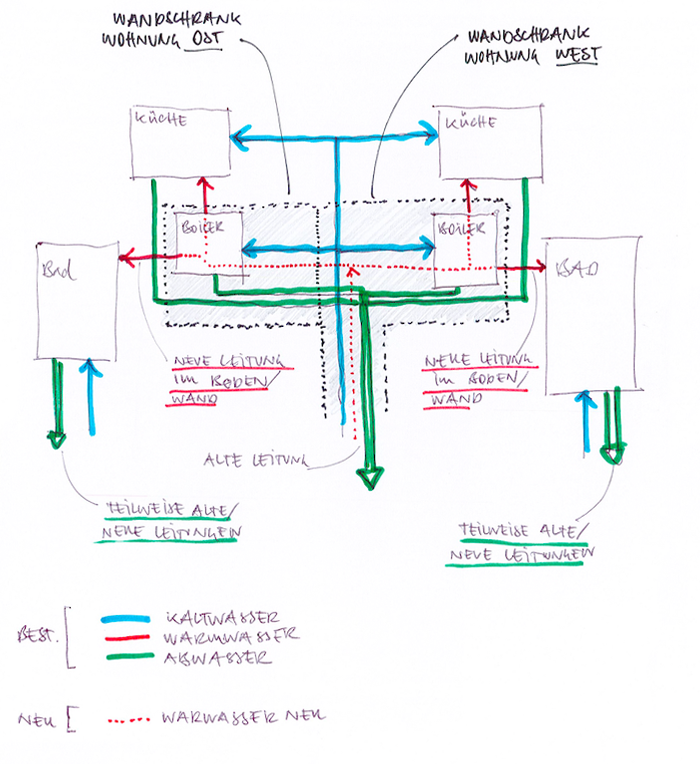 WANDSCHRANK
WOHNUNG OST
WANDSCHRANK
WOHNUNG WEST
KÜCHE
KÜCHE
BOILER
BOILER
Bad
BAD
NEUE LEITUNG
IM BODEN/
WAND
NEUE LEITUNG
IM BODEN/
WAND
ALTE LEITUNG
TEILWEISE ALTE/
NEUE LEITUNGEN
TEILWEISE ALTE/
NEUE LEITUNGEN
BEST.
KALTWASSER
WARMWASSER
ABWASSER
NEU
WARWASSER NEU